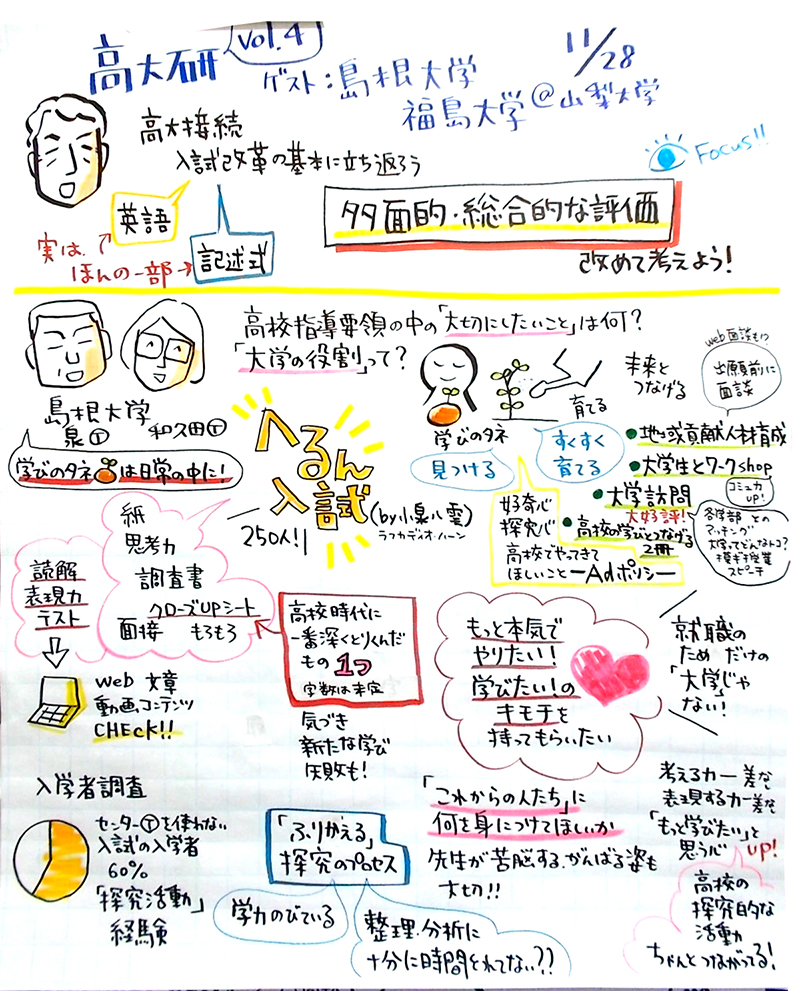 高大研 vol.4
ゲスト:島根大学 11/28
福島大学@山梨大学
高大接続
入試改革の基本に立ち返ろう
Focus!!
英語
多面的・総合的な評価
実は
ほんの一部→
記述式
改めて考えよう!
高校指導要領の中の「大切にしたいこと」は何?
「大学の役割」って?
web面談も!?
出願前に
面談
未来と
つなげる
育てる
島根大学
泉Ⓣ 和久田Ⓣ
学びのタネは日常の中に!
へるん
入試
(by小泉八雲)
ラフカディオ・ハーン
250人!!
学びのタネ
見つける
すくすく
育てる
●地域貢献人材育成
●大学生とワークshop
●大学訪問
大好評!
●高校の学びとつなげる
2冊
コミュ力
UP!
各学部との
マッチング
大学ってどんなトコ?
模ギ授業
スピーチ
好奇心
探究心
高校でやってきて
ほしいこと―Adポリシー
紙
思考力
調査書
クローズUPシート
面接 もろもろ
読解
表現力
テスト
web 文章
動画.コンテンツ
CHEcK!!
高校時代に
一番深くとりくんだ
もの 1つ
字数は未定
気づき
新たな学び
失敗も!
もっと本気で
やりたい!
学びたい!の
キモチを
持ってもらいたい
就職の
ためだけの
「大学じゃ
ない!
入学者調査
センターⓉを使わない
入試の入学者
60%
「探究活動」
経験
「ふりかえる」
探究のプロセス
学力のびている
整理・分析に
十分に時間とれてない??
「これからの人たち」に
何を身につけてほしいか
先生が苦脳する、がんばる姿も
大切!!
考える力ー差な
表現する力ー差な
「もっと学びたい」と
思う心 UP!
高校の
探究的な
活動
ちゃんとつながってる!